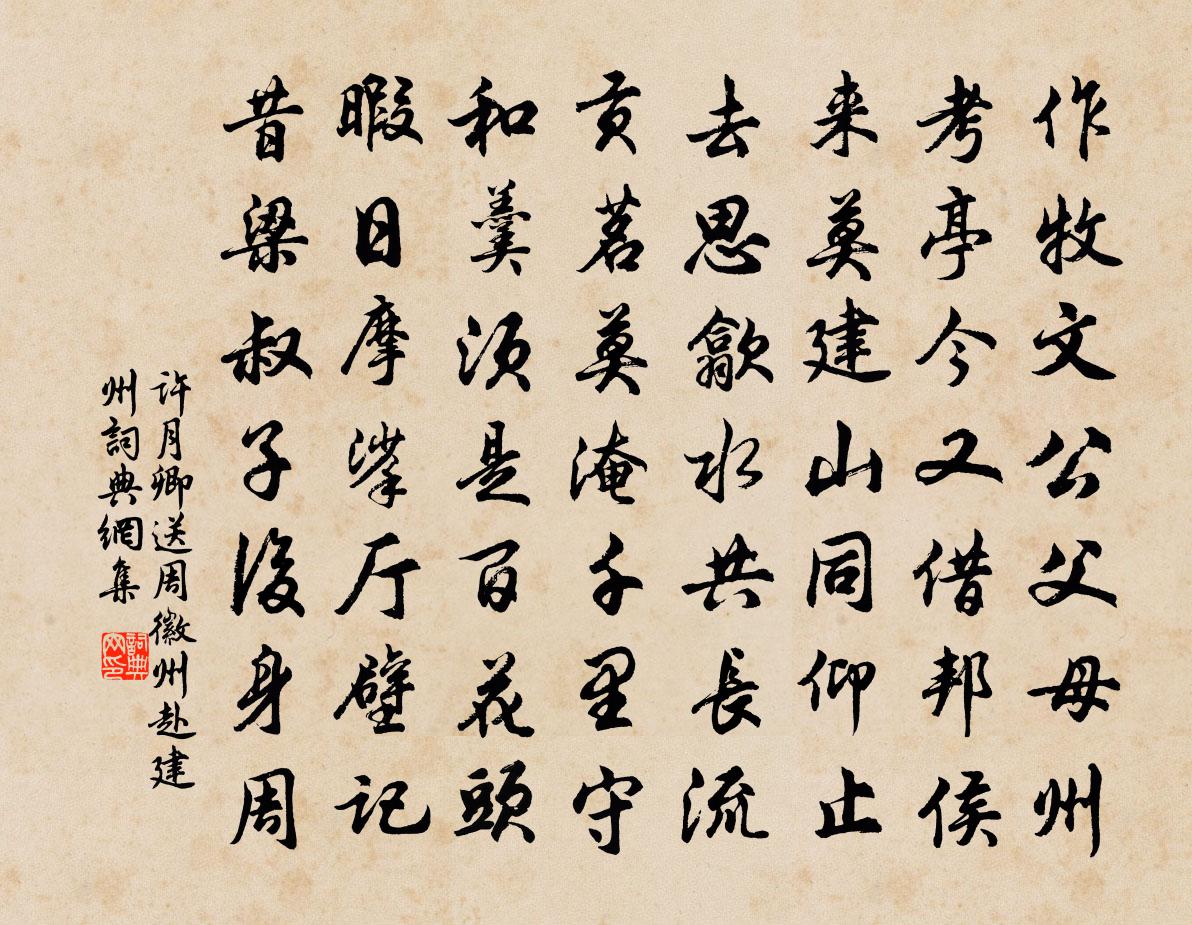 作牧文公父母州
考亭今又借邦侯
来莫建山同仰止
去思歙水共長流
贡茗莫淹千里守
和羹须是百花頭
暇日摩挲厅壁记
昔梁叔子後身周
許月卿送周徽州赴建
州詞典網集
詞典网印